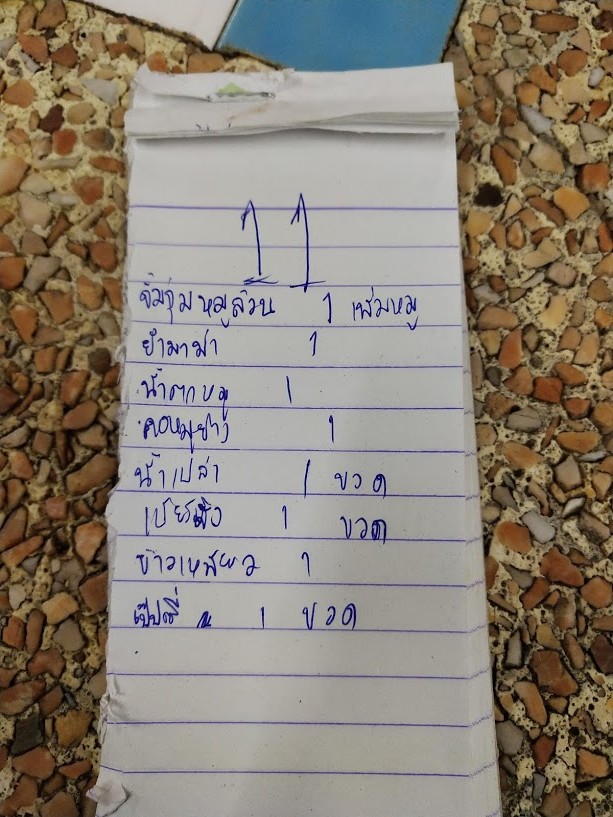 11
จิ้มจุ่มหมูล้วน 1 เพิ่มหมู
ยำมาม่า 1
น้ำตกหมู 1
คอหมูย่าง 1
น้ำเปล่า 1 ขวด
เบียร์สิง 1 ขวด
ข้าวเหนียว 1
เป๊ปซี่ 1 ขวด